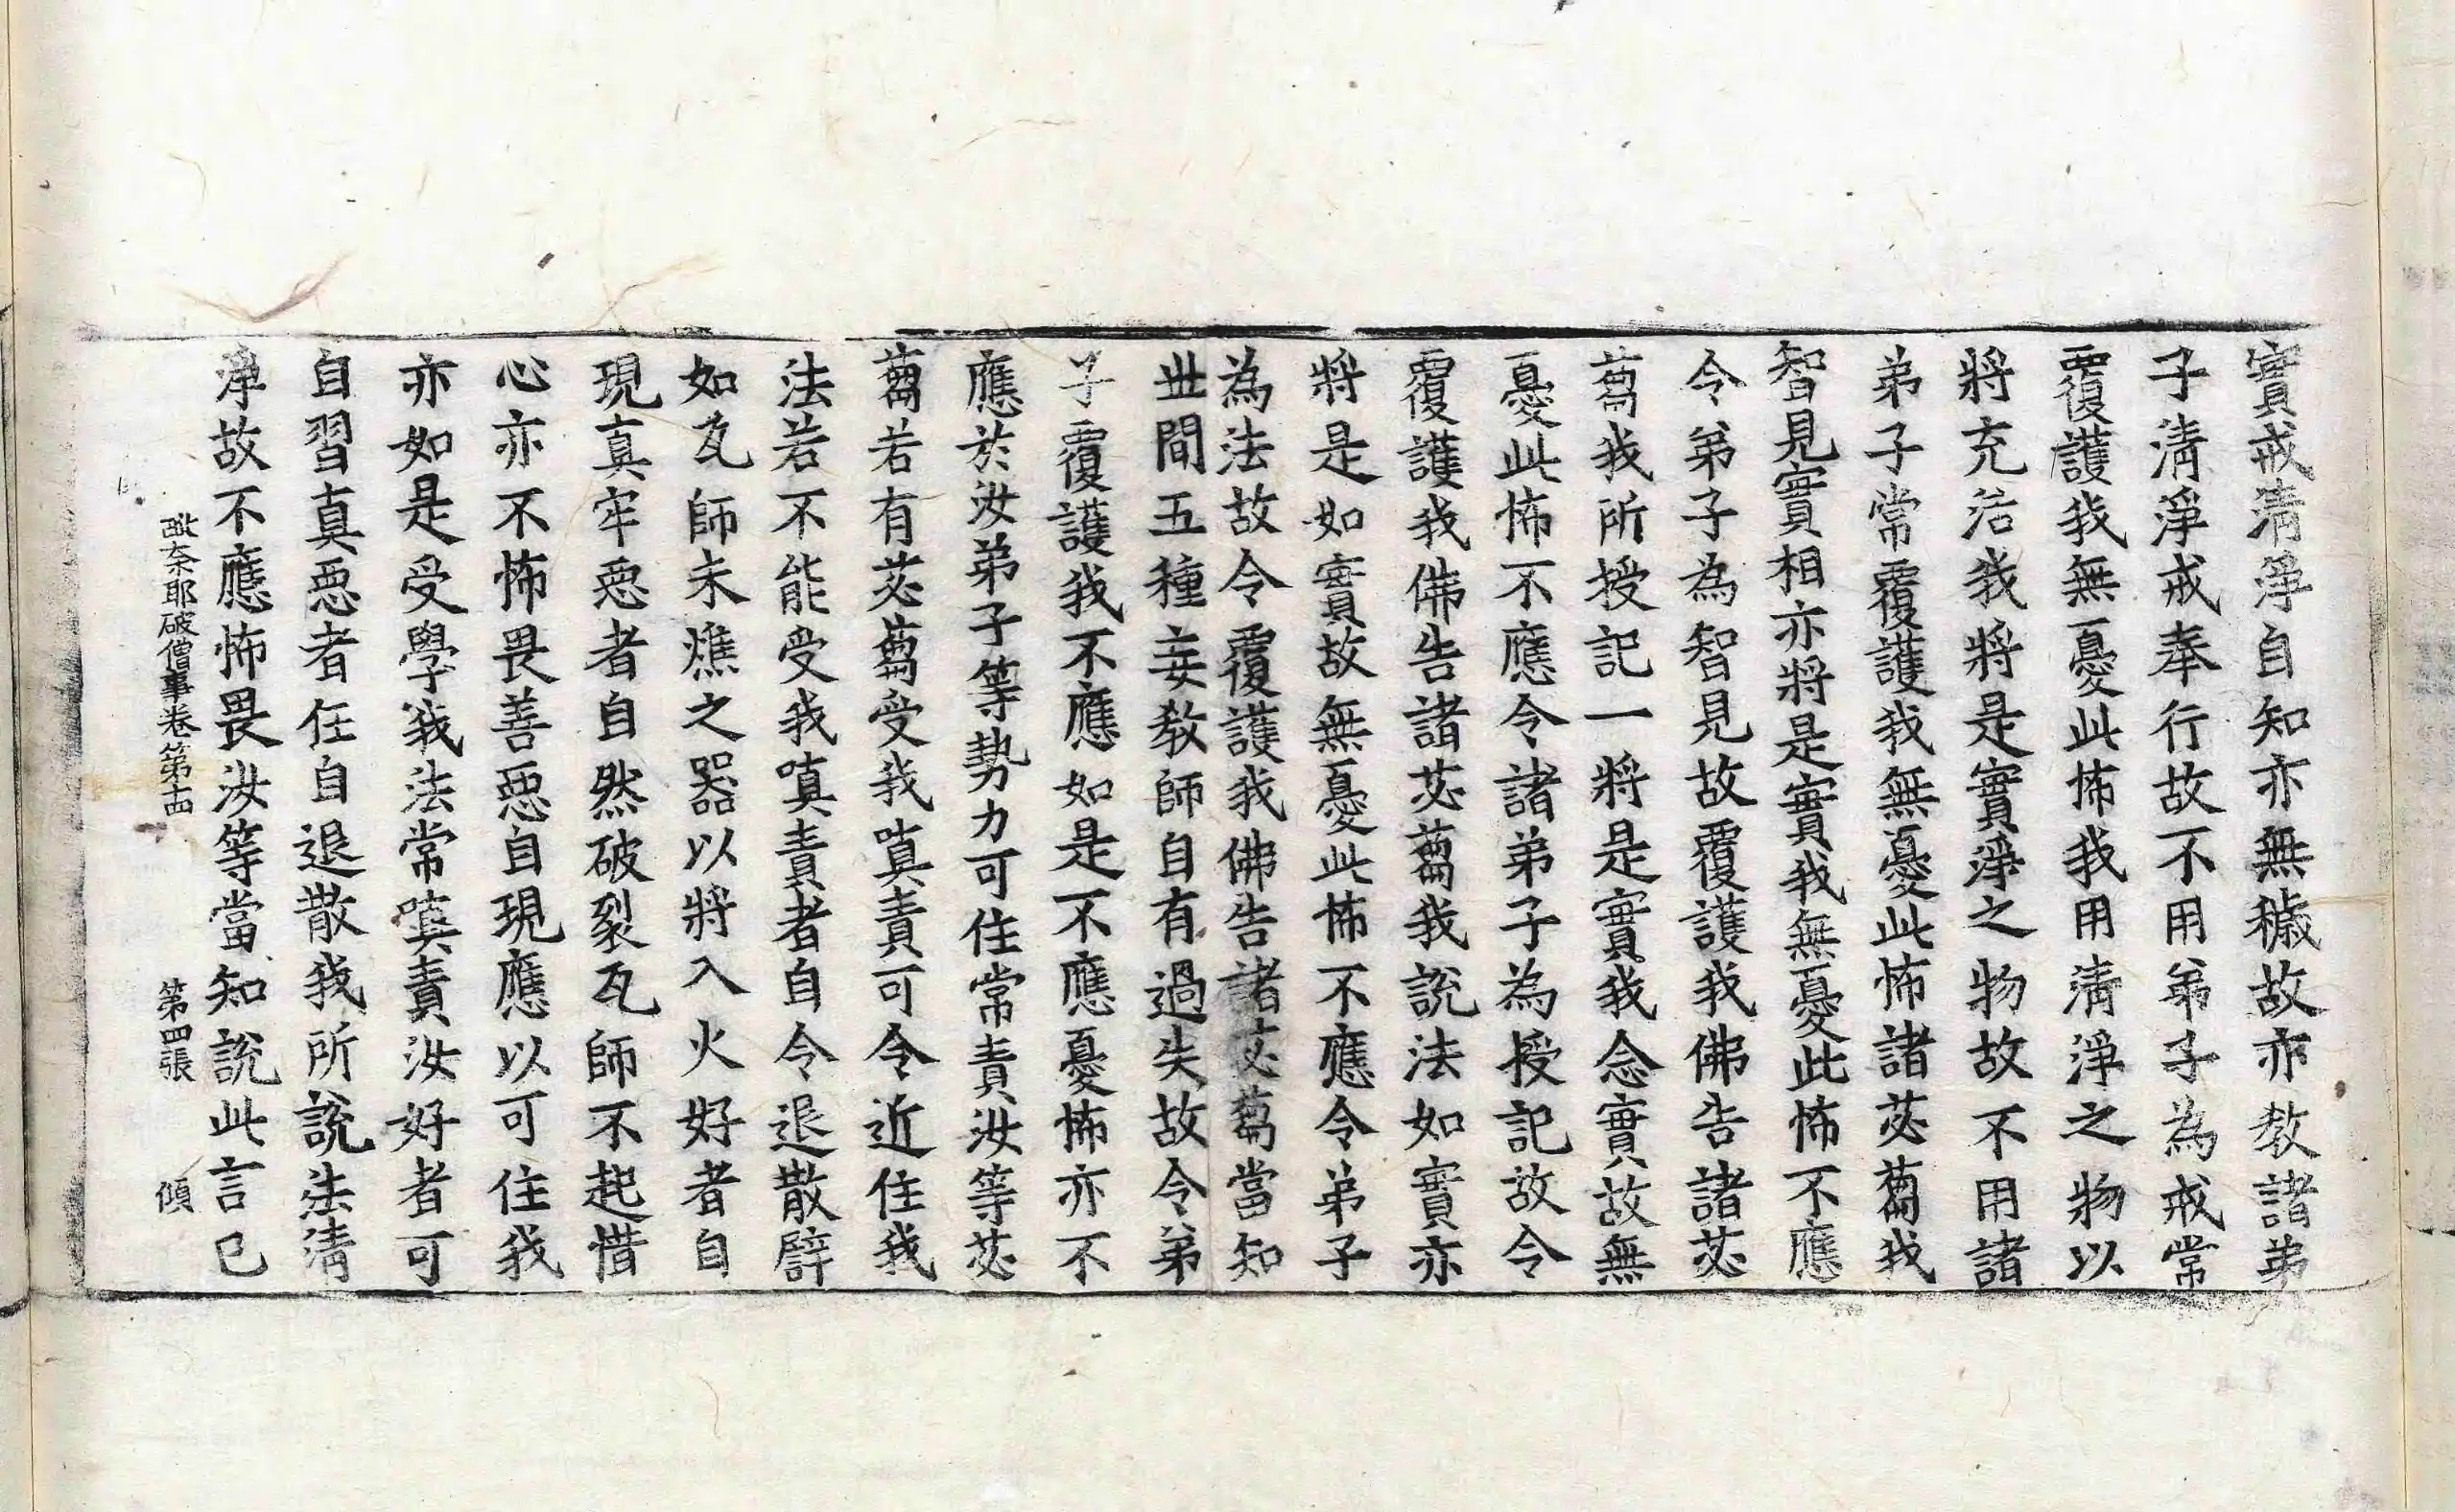 實戒清淨自知亦無穢故亦教諸弟
子清淨戒奉行故不用弟子為戒常
覆護我無憂此怖我用清淨之物以
將充治我將是實淨之物故不用諸
弟子常覆護我無憂此怖諸苾蒭我
智見實相亦將是實我無憂此怖不應
令弟子為智見故覆護我佛告諸苾
蒭我所授記一將是實我念實故無
憂此怖不應令諸弟子為授記故令
覆護我佛告諸苾蒭我說法如實亦
將是如實故無憂此怖不應令弟子
為法故令覆護我佛告諸苾蒭當知
世間五種妄教師自有過失故令弟
子覆護我不應如是不應憂怖亦不
應於汝弟子等勢力可住常責汝等苾
蒭若有苾蒭受我嗔責可令近住我
法若不能受我嗔責者自令退散譬
如瓦師未燋之器以將入火好者自
現真牢惡者自然破裂瓦師不起惜
心亦不怖畏善惡自現應以可住我
亦如是受學我法常嗔責汝好者可
自習真惡者任自退散我所說法清
淨故不應怖畏汝等當知說此言已
毗奈耶破僧事卷第十四 第四張 傾